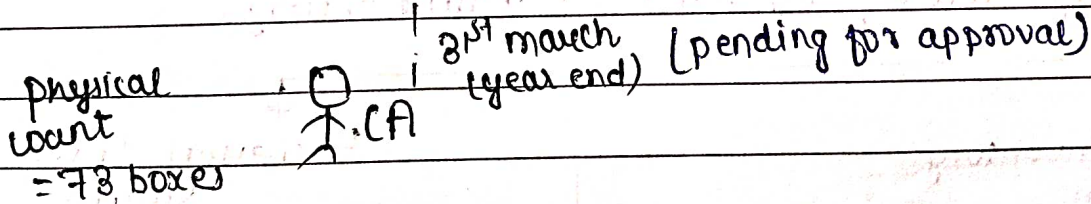 31st march (pending for approval)
(year end)
physical
count
.CA
= 73 boxes